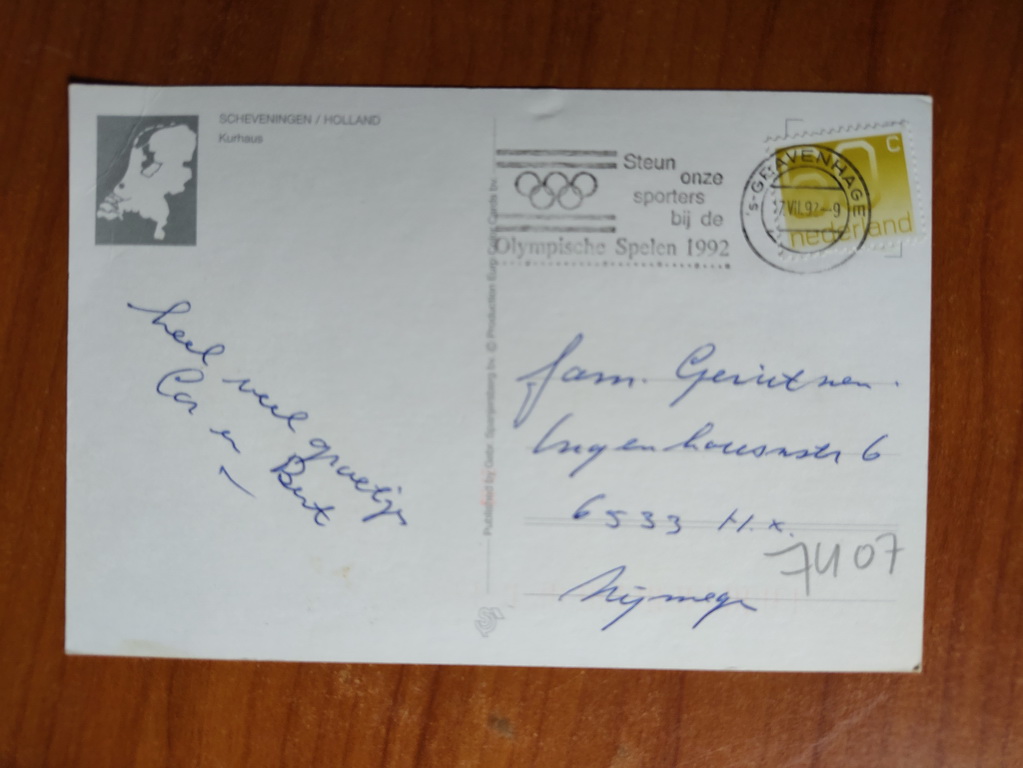 SCHEVENINGEN / HOLLAND
Kurhaus
heel veel groetjes
Cor en Bert
Steun
onze
sporters
bij de
Olympische Spelen 1992
's-GRAVENHAGE
17.VII.92-9
C
nederland
fam. Gerritsen.
Ingenhouszstr 6
6533 H.x.
Nijmegen
7407
Published by Gebr. Spanjersberg bv. © Production Euro Cards bv.